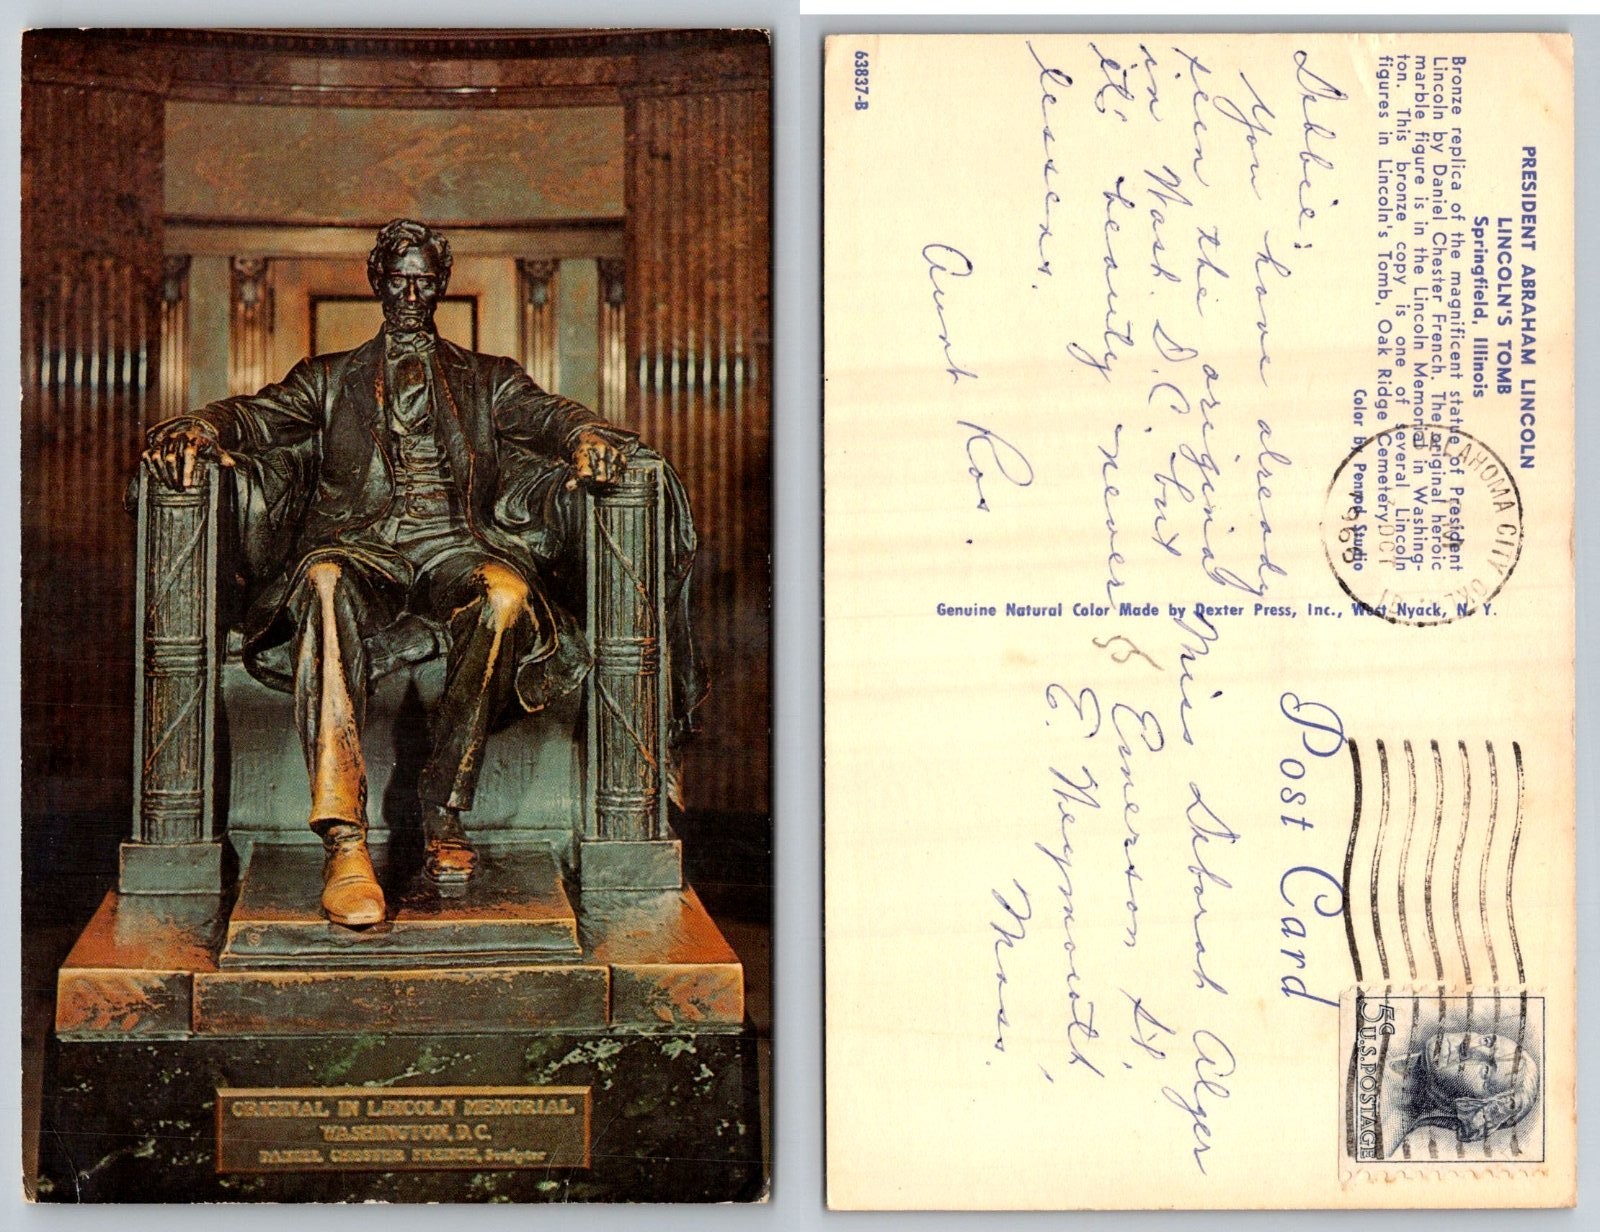 ORIGINAL IN LINCOLN MEMORIAL
WASHINGTON, D.C.
DANIEL CHESTER FRENCH, Sculptor
PRESIDENT ABRAHAM LINCOLN
LINCOLN'S TOMB
Springfield, Illinois
Bronze replica of the magnificent statue of President
Lincoln by Daniel Chester French. The original heroic
marble figure is in the Lincoln Memorial in Washing-
ton. This bronze copy is one of several Lincoln
figures in Lincoln's Tomb, Oak Ridge Cemetery.
Color by Penrod Studio
Debbie:
You have already
seen the original
in Wash. D.C. but
it's beauty never
lessens.
Aunt Ros.
63837-B
Genuine Natural Color Made by Dexter Press, Inc., West Nyack, N. Y.
Post Card
OKLAHOMA CITY OKLA
OCT
Miss Deborah Alger
55 Emerson St.
E. Weymouth,
Mass.
5¢ U.S. POSTAGE